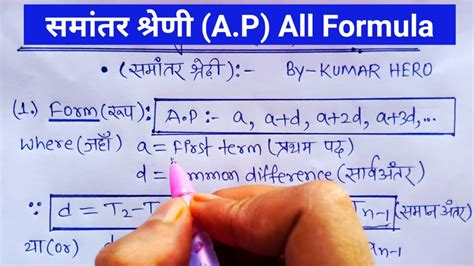 समांतर श्रेणी (A.P) All Formula
• (समांतर श्रेढ़ी):- By-KUMAR HERO
(1.) Form(रूप): A.P :- a, a+d, a+2d, a+3d,...
where(जहाँ) a = first term (प्रथम पद)
d = common difference (सार्वअंतर)
∵ d = T₂-T Tn-1 (समान अंतर)
या(or) d